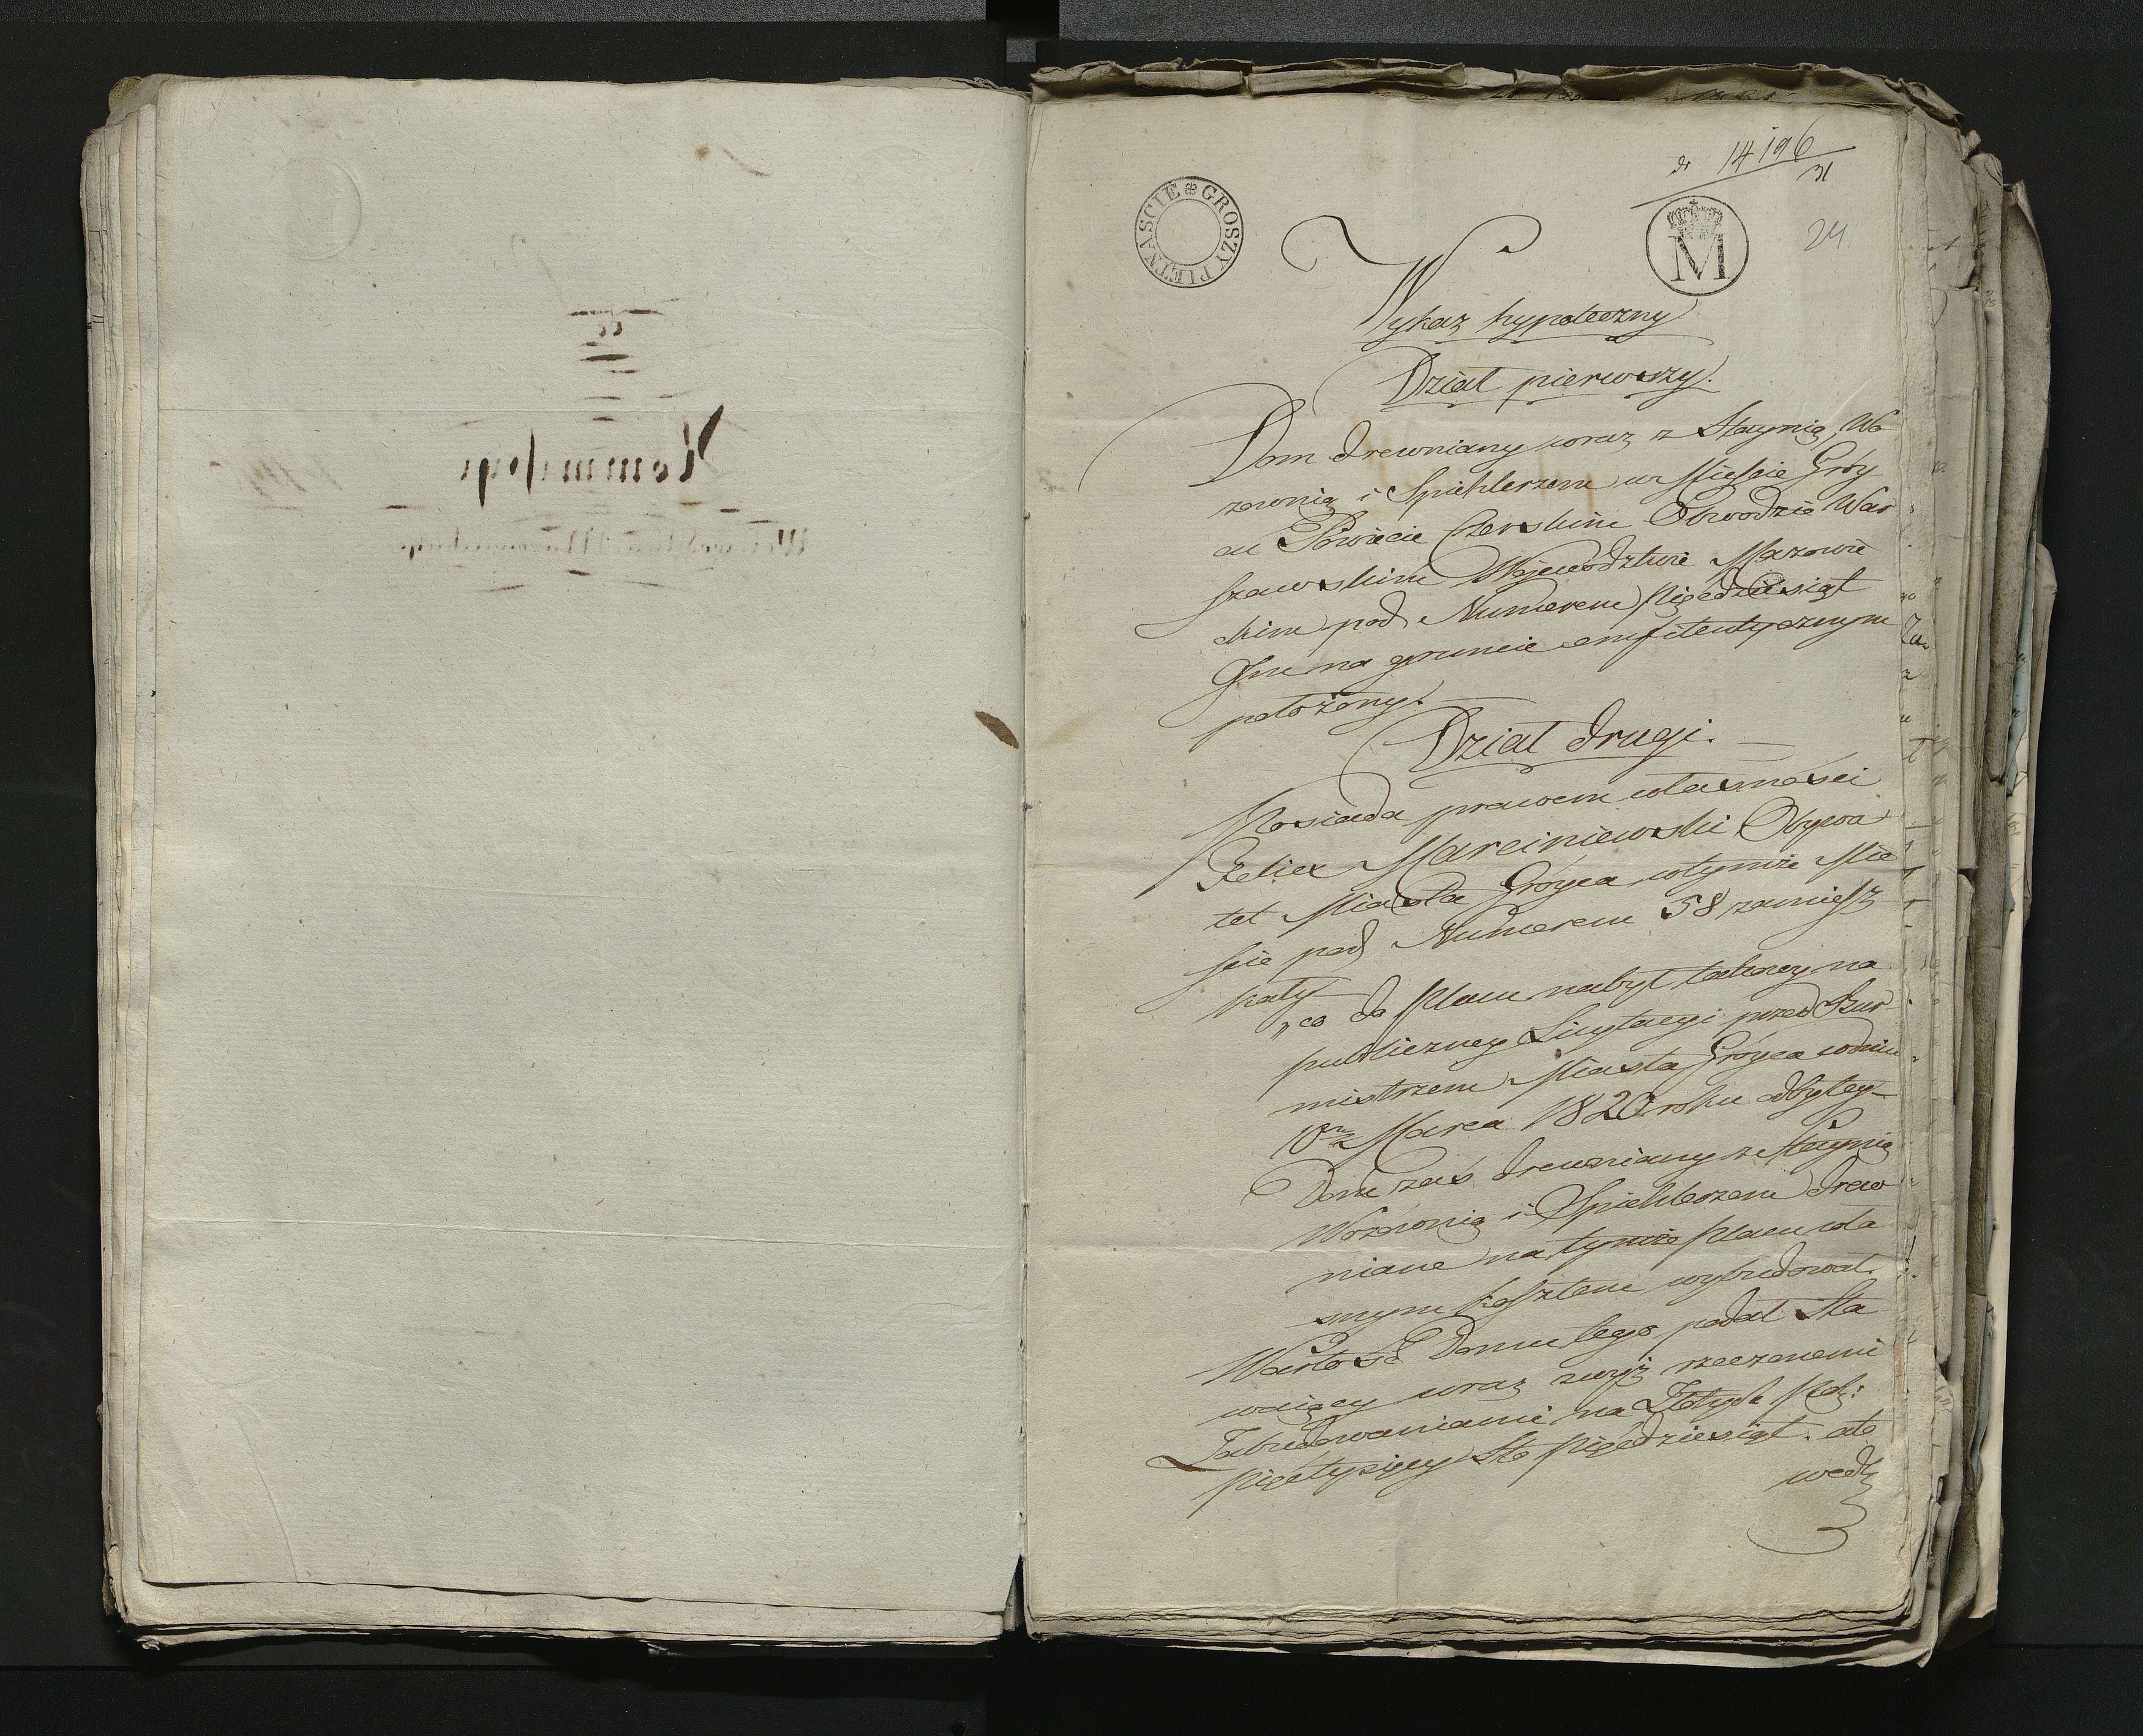 do 14196
31
GROSZY PIETNAŚCIE
M
24
Wykaz hypoteczny
Dział pierwszy.
Dom drewniany wraz z Staynią, Wo
zownią i Spichlerzem w Mieście Gróy
cu Powiecie Czerskim Obwodzie War
szawskim Województwie Mazowie
ckim pod Numerem Pięćdziesiąt
Gm na gruncie emfiteutycznym
położony.
Dział drugi.
Posiada prawem własności
Felix Marciniewski Obywa
tel Miasta Gróyca w tymże Mie
ście pod Numerem 58 zamiesz
kały
"co do Placu nabył takowy na
publiczney Licytacyi przed Bur
mistrzem Miasta Gróyca w dniu
10m Marca 1820 roku odbytey
Dom zaś drewniany z Staynią
Wozownią i Spichlerzem drew
niane na tymże Placu wła
snym kosztem wybudował.
Wartość Domu tego podał Sta
waiący wraz zwyż rzeczonemi
Zabudowaniami na Złotych Pol:
Pięć tysięcy Sto Pięćdziesiąt. ale
wedł
Kommissyi
Woiewodztwa Mazowieckiego